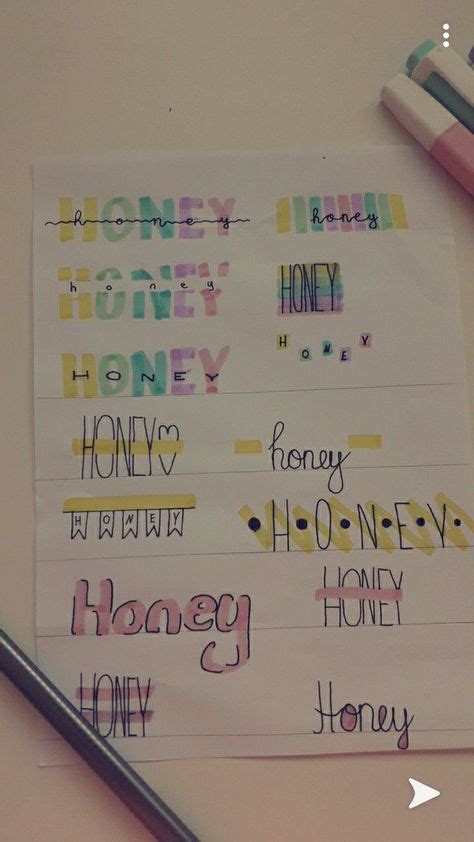 HONEY honey honey
HONEY honey HONEY
HONEY
HONEY HONEY
HONEY honey
HONEY H.O.N.E.Y.
Honey HONEY
HONEY Honey